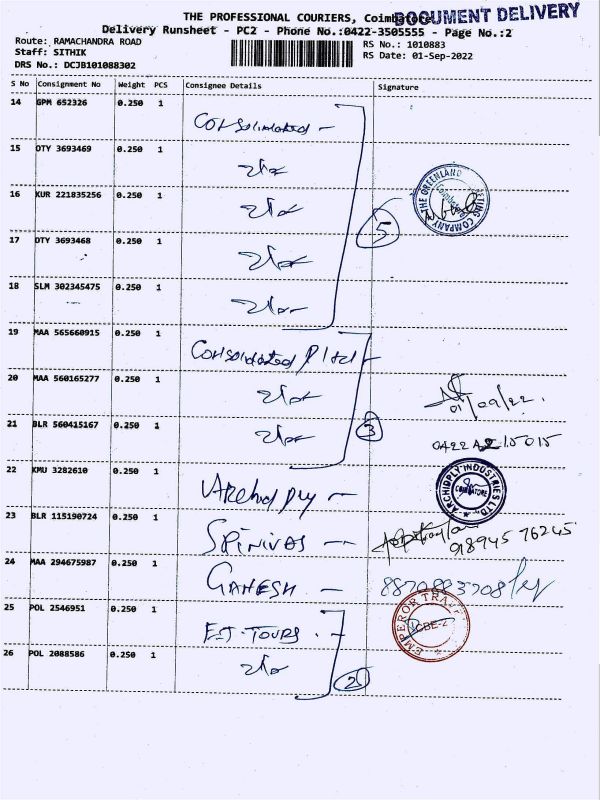 THE PROFESSIONAL COURIERS, Coimbatore
DOCUMENT DELIVERY
Delivery Runsheet - PC2 - Phone No.:0422-3505555 - Page No.:2
Route: RAMACHANDRA ROAD
RS No.: 1010883
Staff: SITHIK
RS Date: 01-Sep-2022
DRS No.: DCJB101088302
S No Consignment No Weight PCS Consignee Details Signature
14 GPM 652326 0.250 1
Consolidated
15 DTY 3693469 0.250 1
16 KUR 221835256 0.250 1
THE GREENLAND
COMPANY
5
17 DTY 3693468 0.250 1
18 SLM 302345475 0.250 1
19 MAA 565660915 0.250 1
Consolidated
20 MAA 560165277 0.250 1
01/09/22.
21 BLR 560415167 0.250 1
3
0422 15015
22 KMU 3282610 0.250 1
ARCHIDPLY INDUSTRIES LTD.
COIMBATORE
23 BLR 115190724 0.250 1
SRINIVAS
98945 76245
24 MAA 294675987 0.250 1
GANESH
8870893708
25 POL 2546951 0.250 1
E.T. TOURS
EMPEROR
CBE-2
26 POL 2088586 0.250 1
2